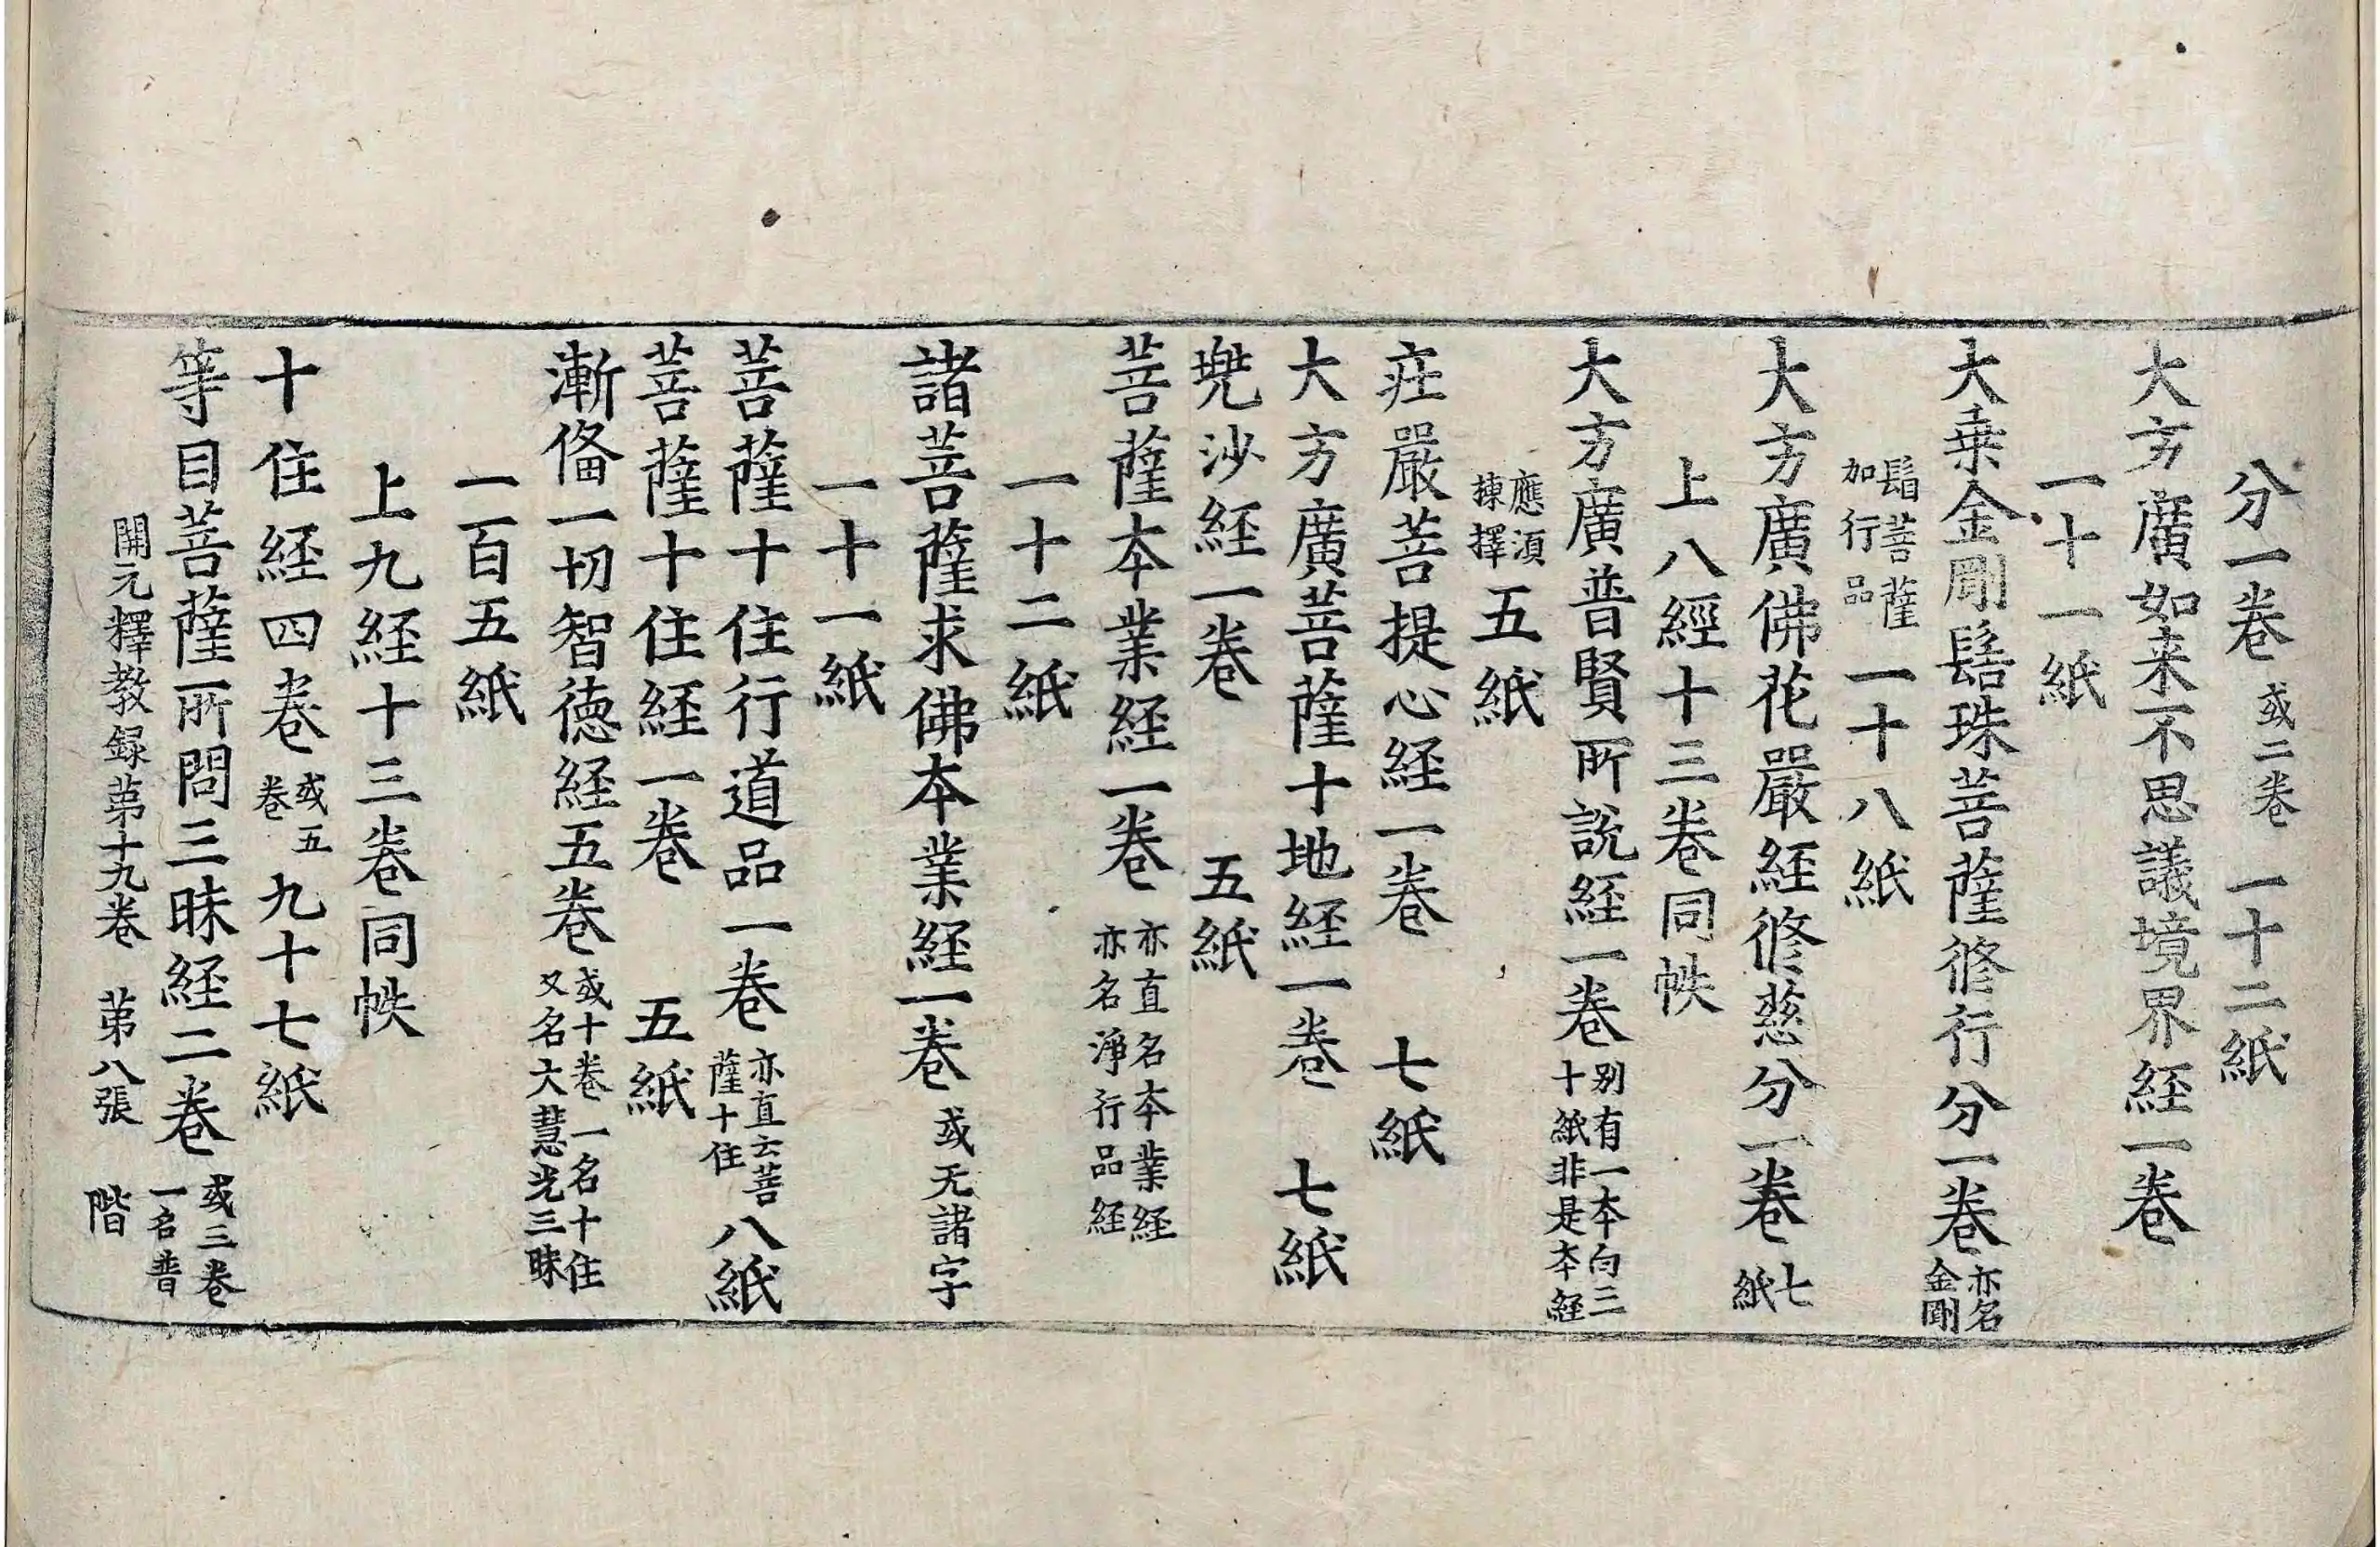 分一卷 或二卷 一十二紙
大方廣如来不思議境界経一卷
一十一紙
大乗金剛髻珠菩薩修行分一卷 亦名金剛
髻菩薩加行品 一十八紙
大方廣佛花嚴経修慈分一卷 七紙
上八經十三卷同帙
大方廣普賢所說経一卷 别有一本向三十紙非是本経
應湏揀擇 五紙
庄嚴菩提心経一卷 七紙
大方廣菩薩十地経一卷 七紙
兠沙経一卷 五紙
菩薩本業経一卷 亦直名本業経亦名淨行品経
一十二紙
諸菩薩求佛本業経一卷 或无諸字
一十一紙
菩薩十住行道品一卷 亦直云菩薩十住 八紙
菩薩十住経一卷 五紙
漸俻一切智徳経五卷 或十卷一名十住又名大慧光三昧
一百五紙
上九経十三卷同帙
十住経四卷 或五卷 九十七紙
等目菩薩所問三昧経二卷 或三卷一名普
開元釋教録苐十九卷 苐八張 階